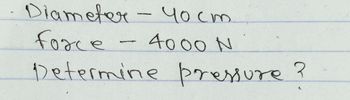 Diameter - 40cm
force - 4000 N
Determine pressure ?